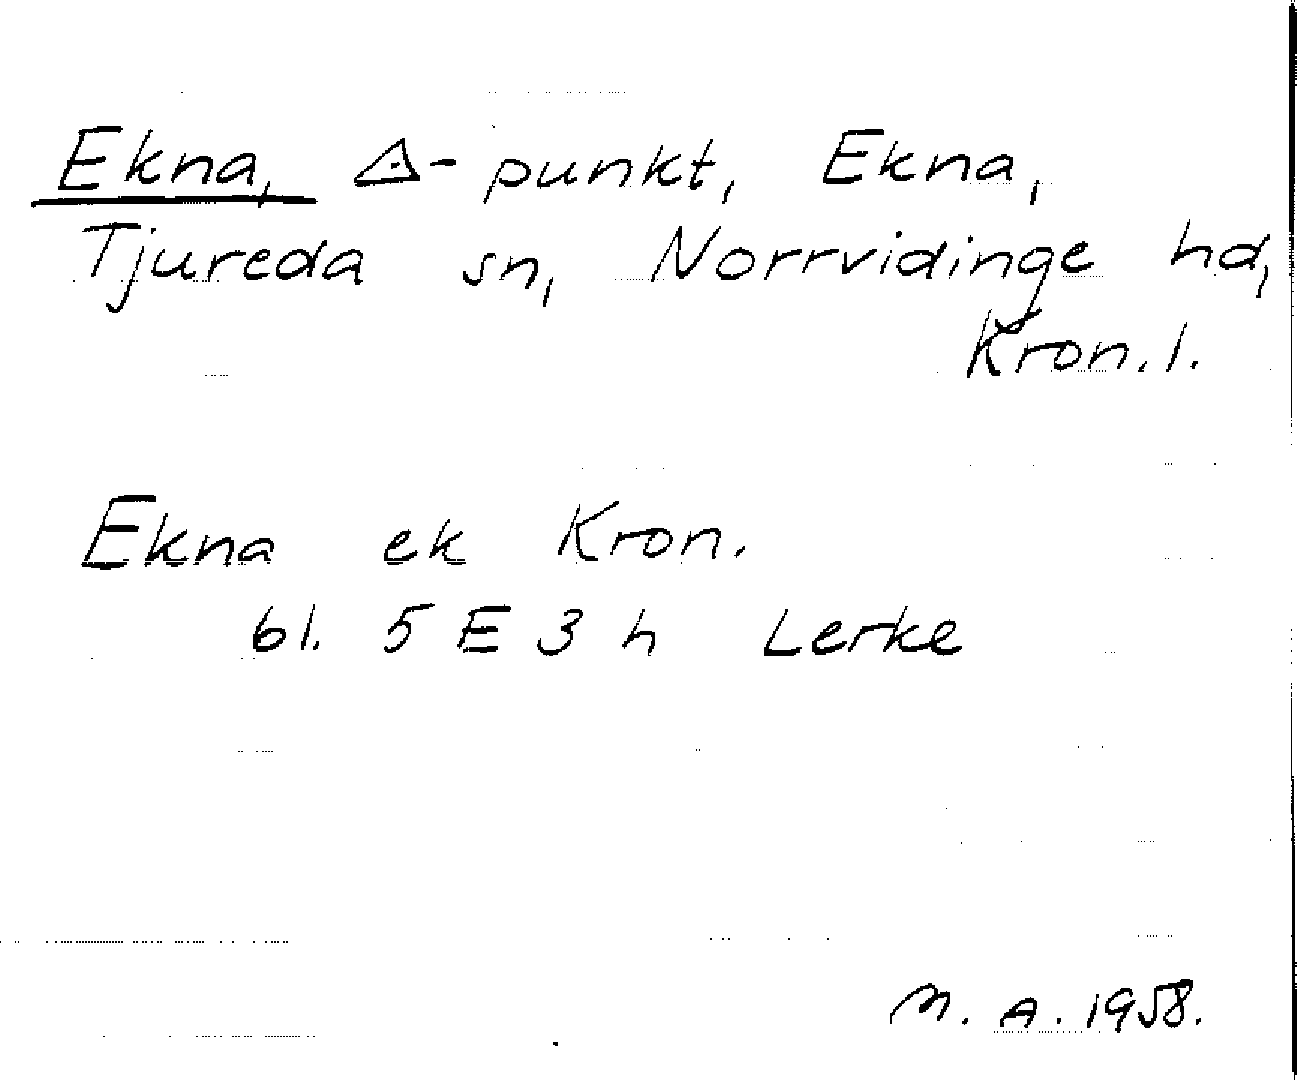 Ekna, △-punkt, Ekna,
Tjureda sn, Norrvidinge hd,
Kron. l.
Ekna ek Kron.
bl. 5 E 3 h Lerke
M. A. 1958.